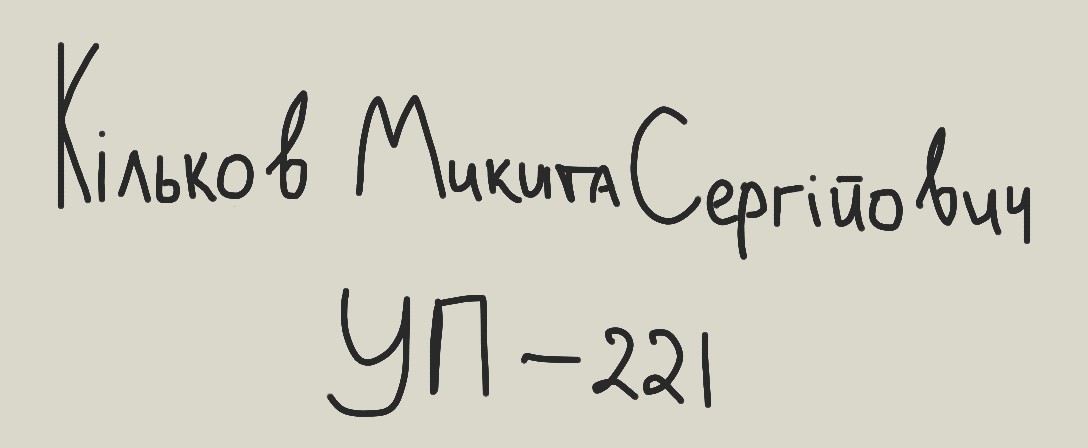 Кільков Микита Сергійович
УП-221